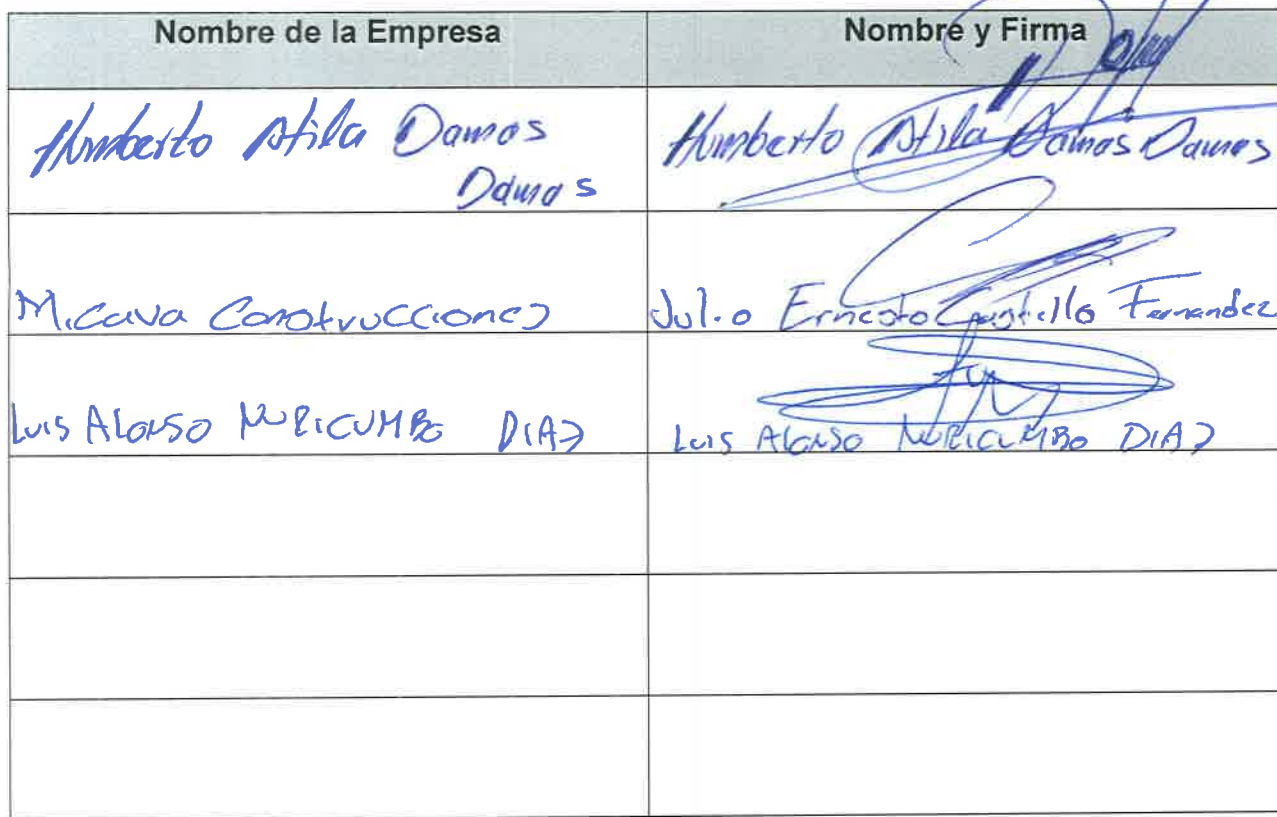 Nombre de la Empresa
Nombre y Firma
Humberto Atila Damas
Damas
Humberto Atila Damas Damas
Micava Construcciones
Julio Ernesto Castillo Fernandez
Luis ALONSO NURICUMBO DIAZ
Luis ALONSO NURICUMBO DIAZ